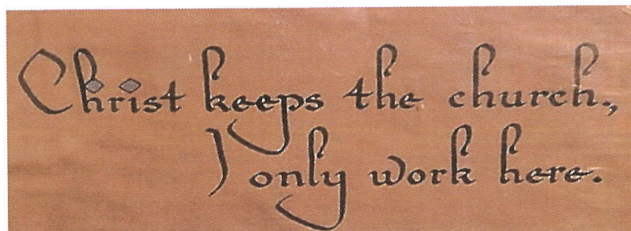 Christ keeps the church,
I only work here.